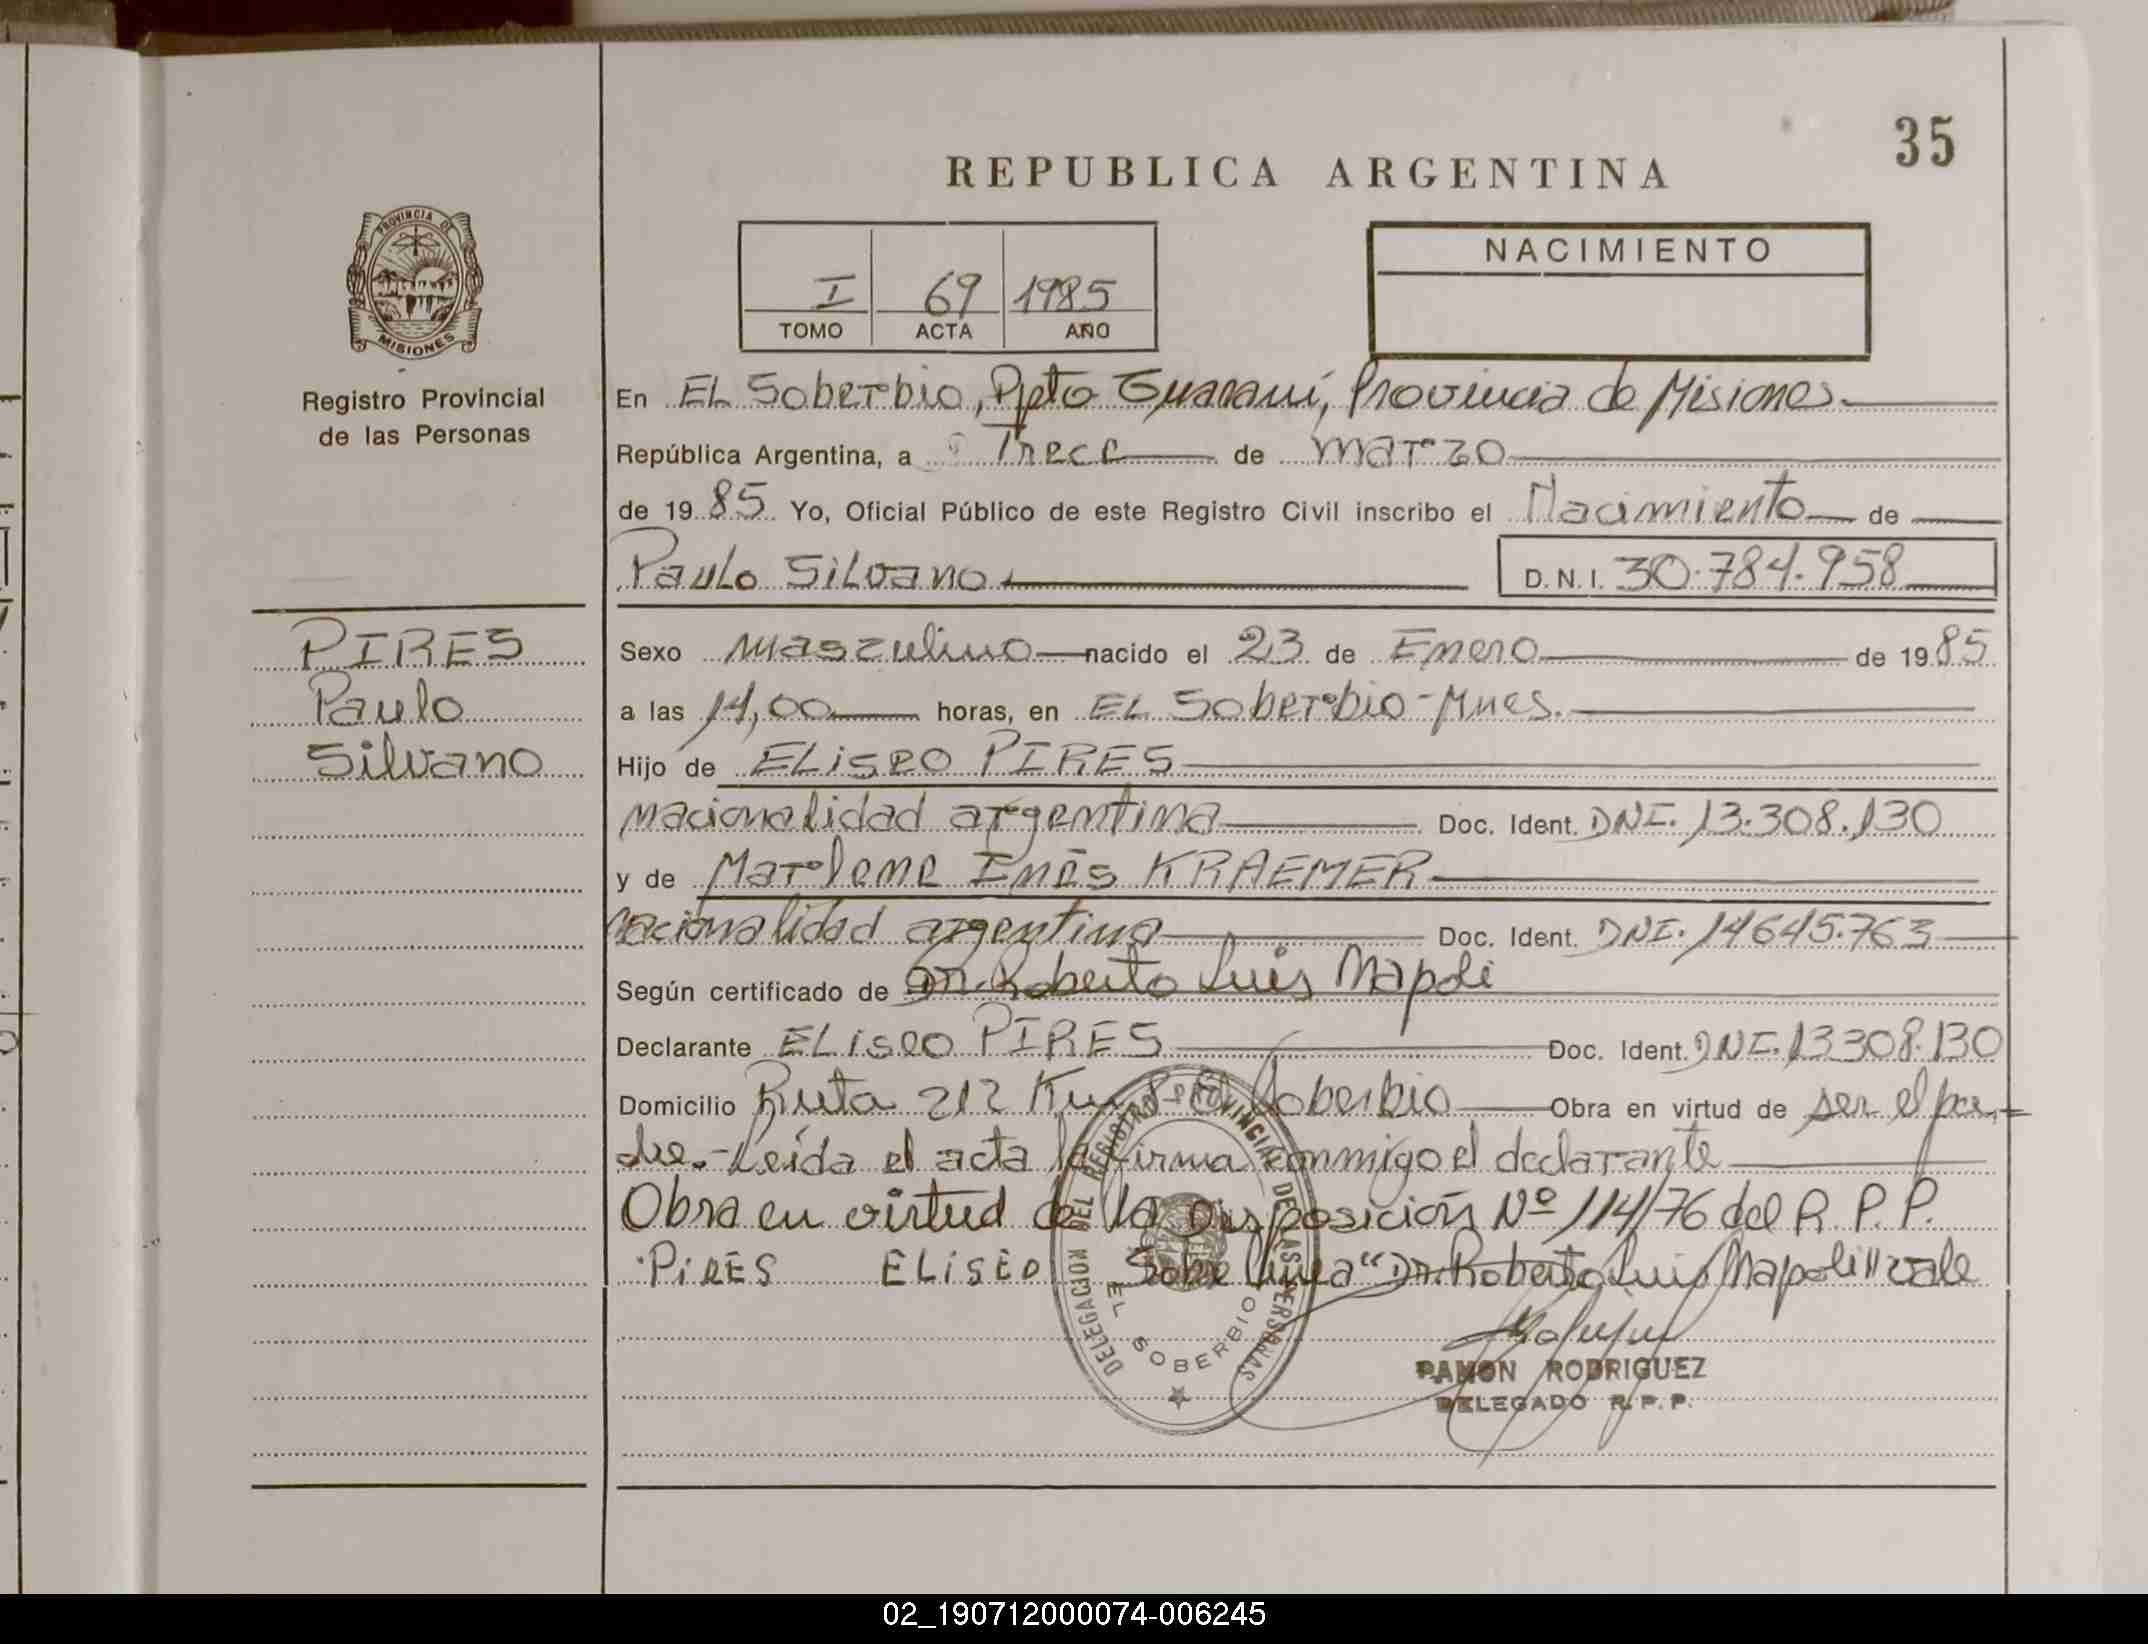 35
REPUBLICA ARGENTINA
PROVINCIA DE
MISIONES
Registro Provincial
de las Personas
I 69 1985
TOMO ACTA AÑO
NACIMIENTO
En EL Soberbio, Dpto Guaraní, Provincia de Misiones
República Argentina, a Trece de marzo
de 1985 Yo, Oficial Público de este Registro Civil inscribo el Nacimiento de
Paulo Silvano D.N.I. 30.784.958
PIRES
Paulo
Silvano
Sexo masculino nacido el 23 de Enero de 1985
a las 14,00 horas, en EL Soberbio-Mnes.
Hijo de ELiseo PIRES
nacionalidad argentina Doc. Ident. DNI. 13.308.130
y de Marlene Inés KRAEMER
nacionalidad argentina Doc. Ident. DNI. 14645.763
Según certificado de Dr. Roberto Luis Napoli
Declarante ELiseo PIRES Doc. Ident. DNI. 13308.130
Domicilio Ruta 212 Km El Soberbio Obra en virtud de ser el pa-
dre.-Leída el acta la firma conmigo el declarante
Obra en virtud de la Disposición Nº 114/76 del R. P. P.
PiRES ELiSEO Sobre línea "Dr. Roberto Luis Napoli" vale
DELEGACION DEL REGISTRO PROVINCIAL DE LAS PERSONAS
EL SOBERBIO
RAMON RODRIGUEZ
DELEGADO R.P.P.
02_190712000074-006245